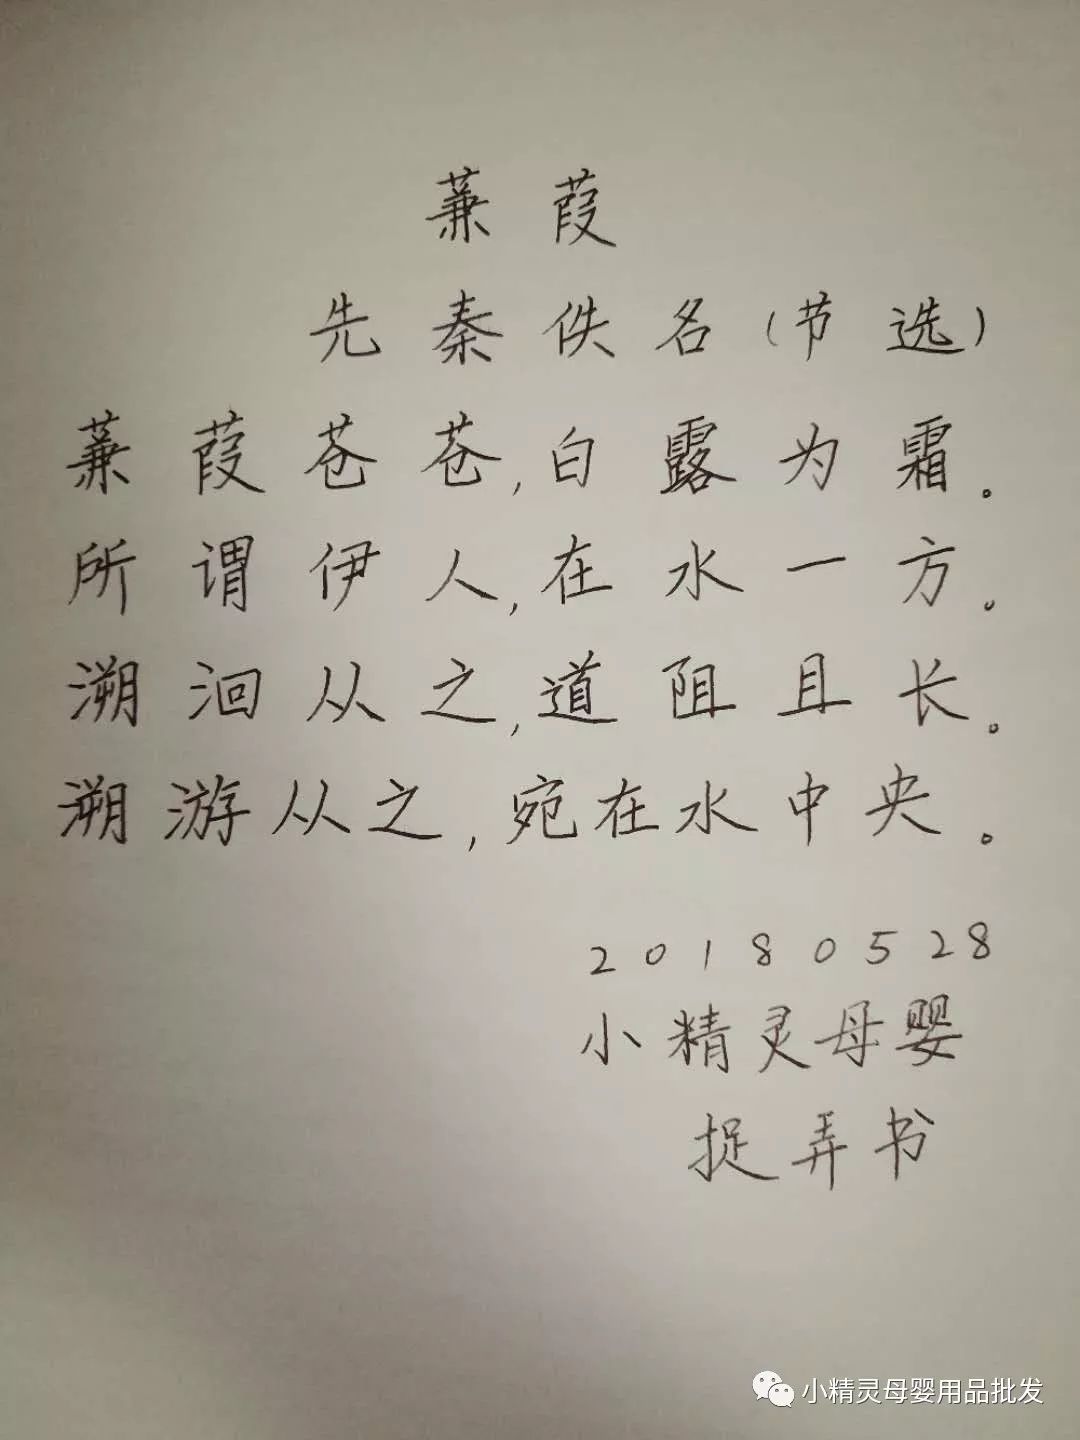 蒹葭
先秦佚名(节选)
蒹葭苍苍,白露为霜。
所谓伊人,在水一方。
溯洄从之,道阻且长。
溯游从之,宛在水中央。
20180528
小精灵母婴
捉弄书
小精灵母婴用品批发